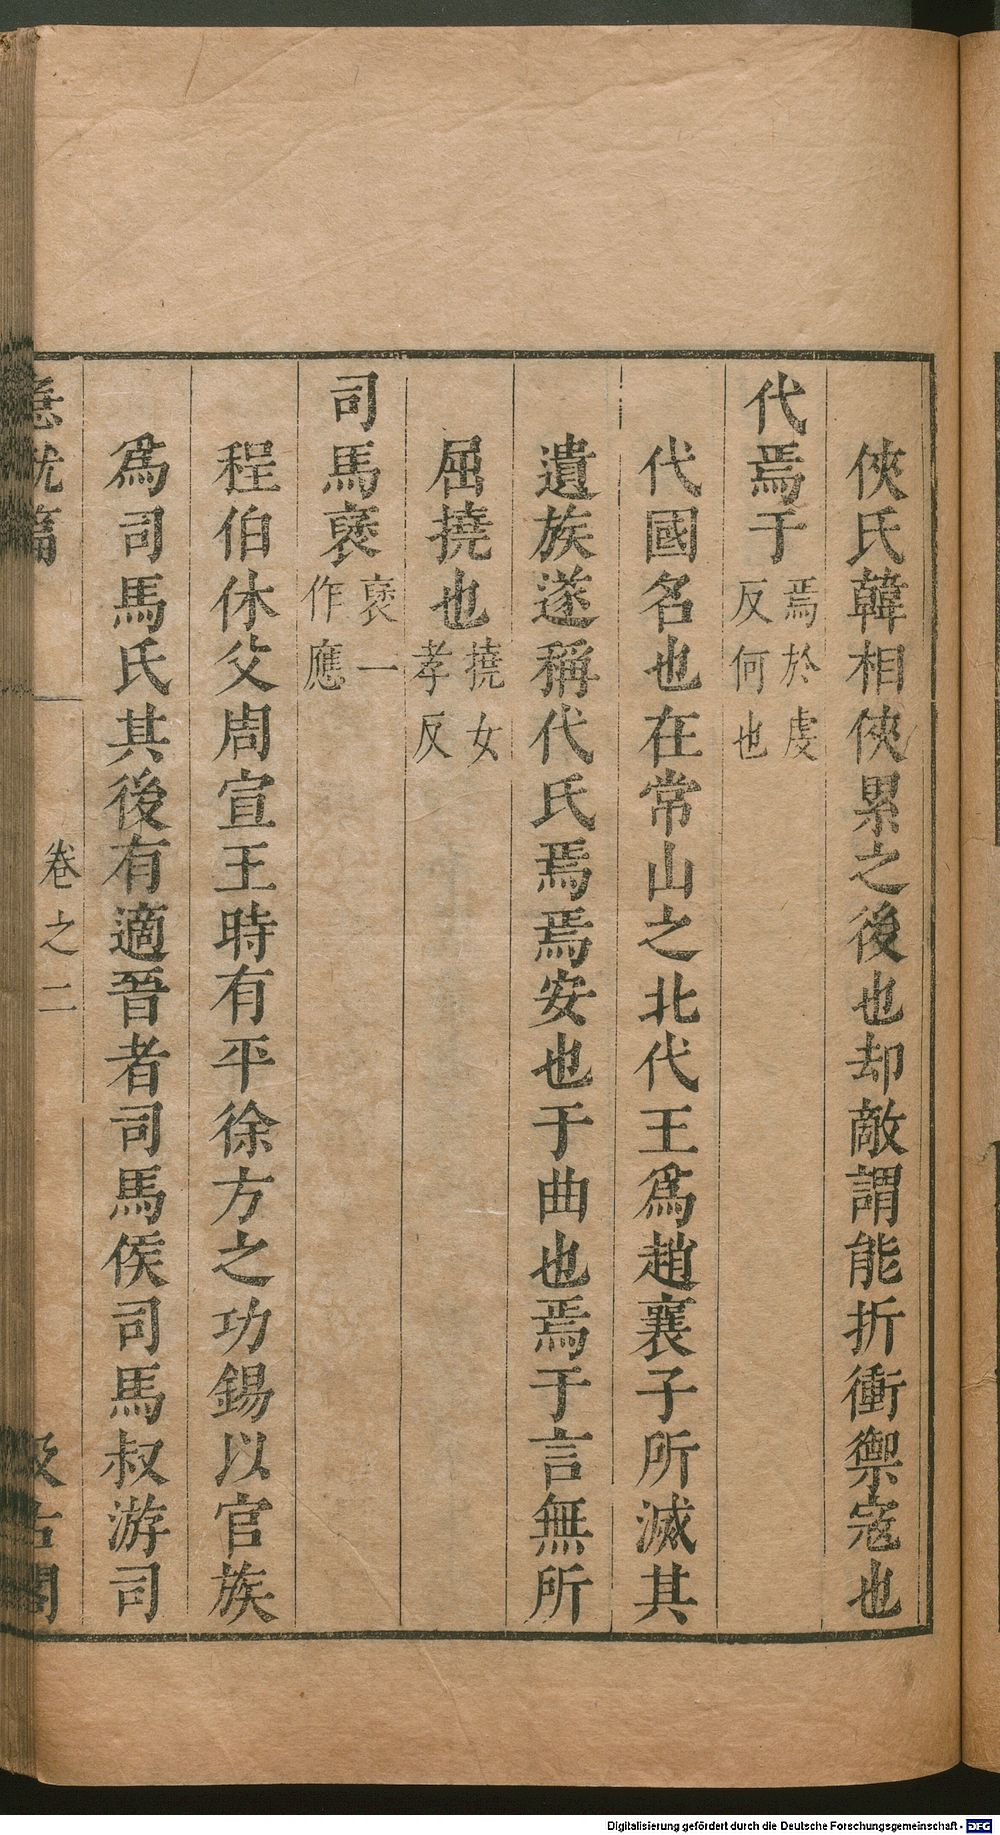 俠氏韓相俠累之後也却敵謂能折衝禦寇也
代焉于焉於虔反何也
代國名也在常山之北代王爲趙襄子所滅其
遺族遂稱代氏焉焉安也于曲也焉于言無所
屈撓也撓女孝反
司馬褒褒一作應
程伯休父周宣王時有平徐方之功錫以官族
爲司馬氏其後有適晉者司馬侯司馬叔游司
急就篇 卷之二 汲古閣
Digitalisierung gefördert durch die Deutsche Forschungsgemeinschaft - DFG